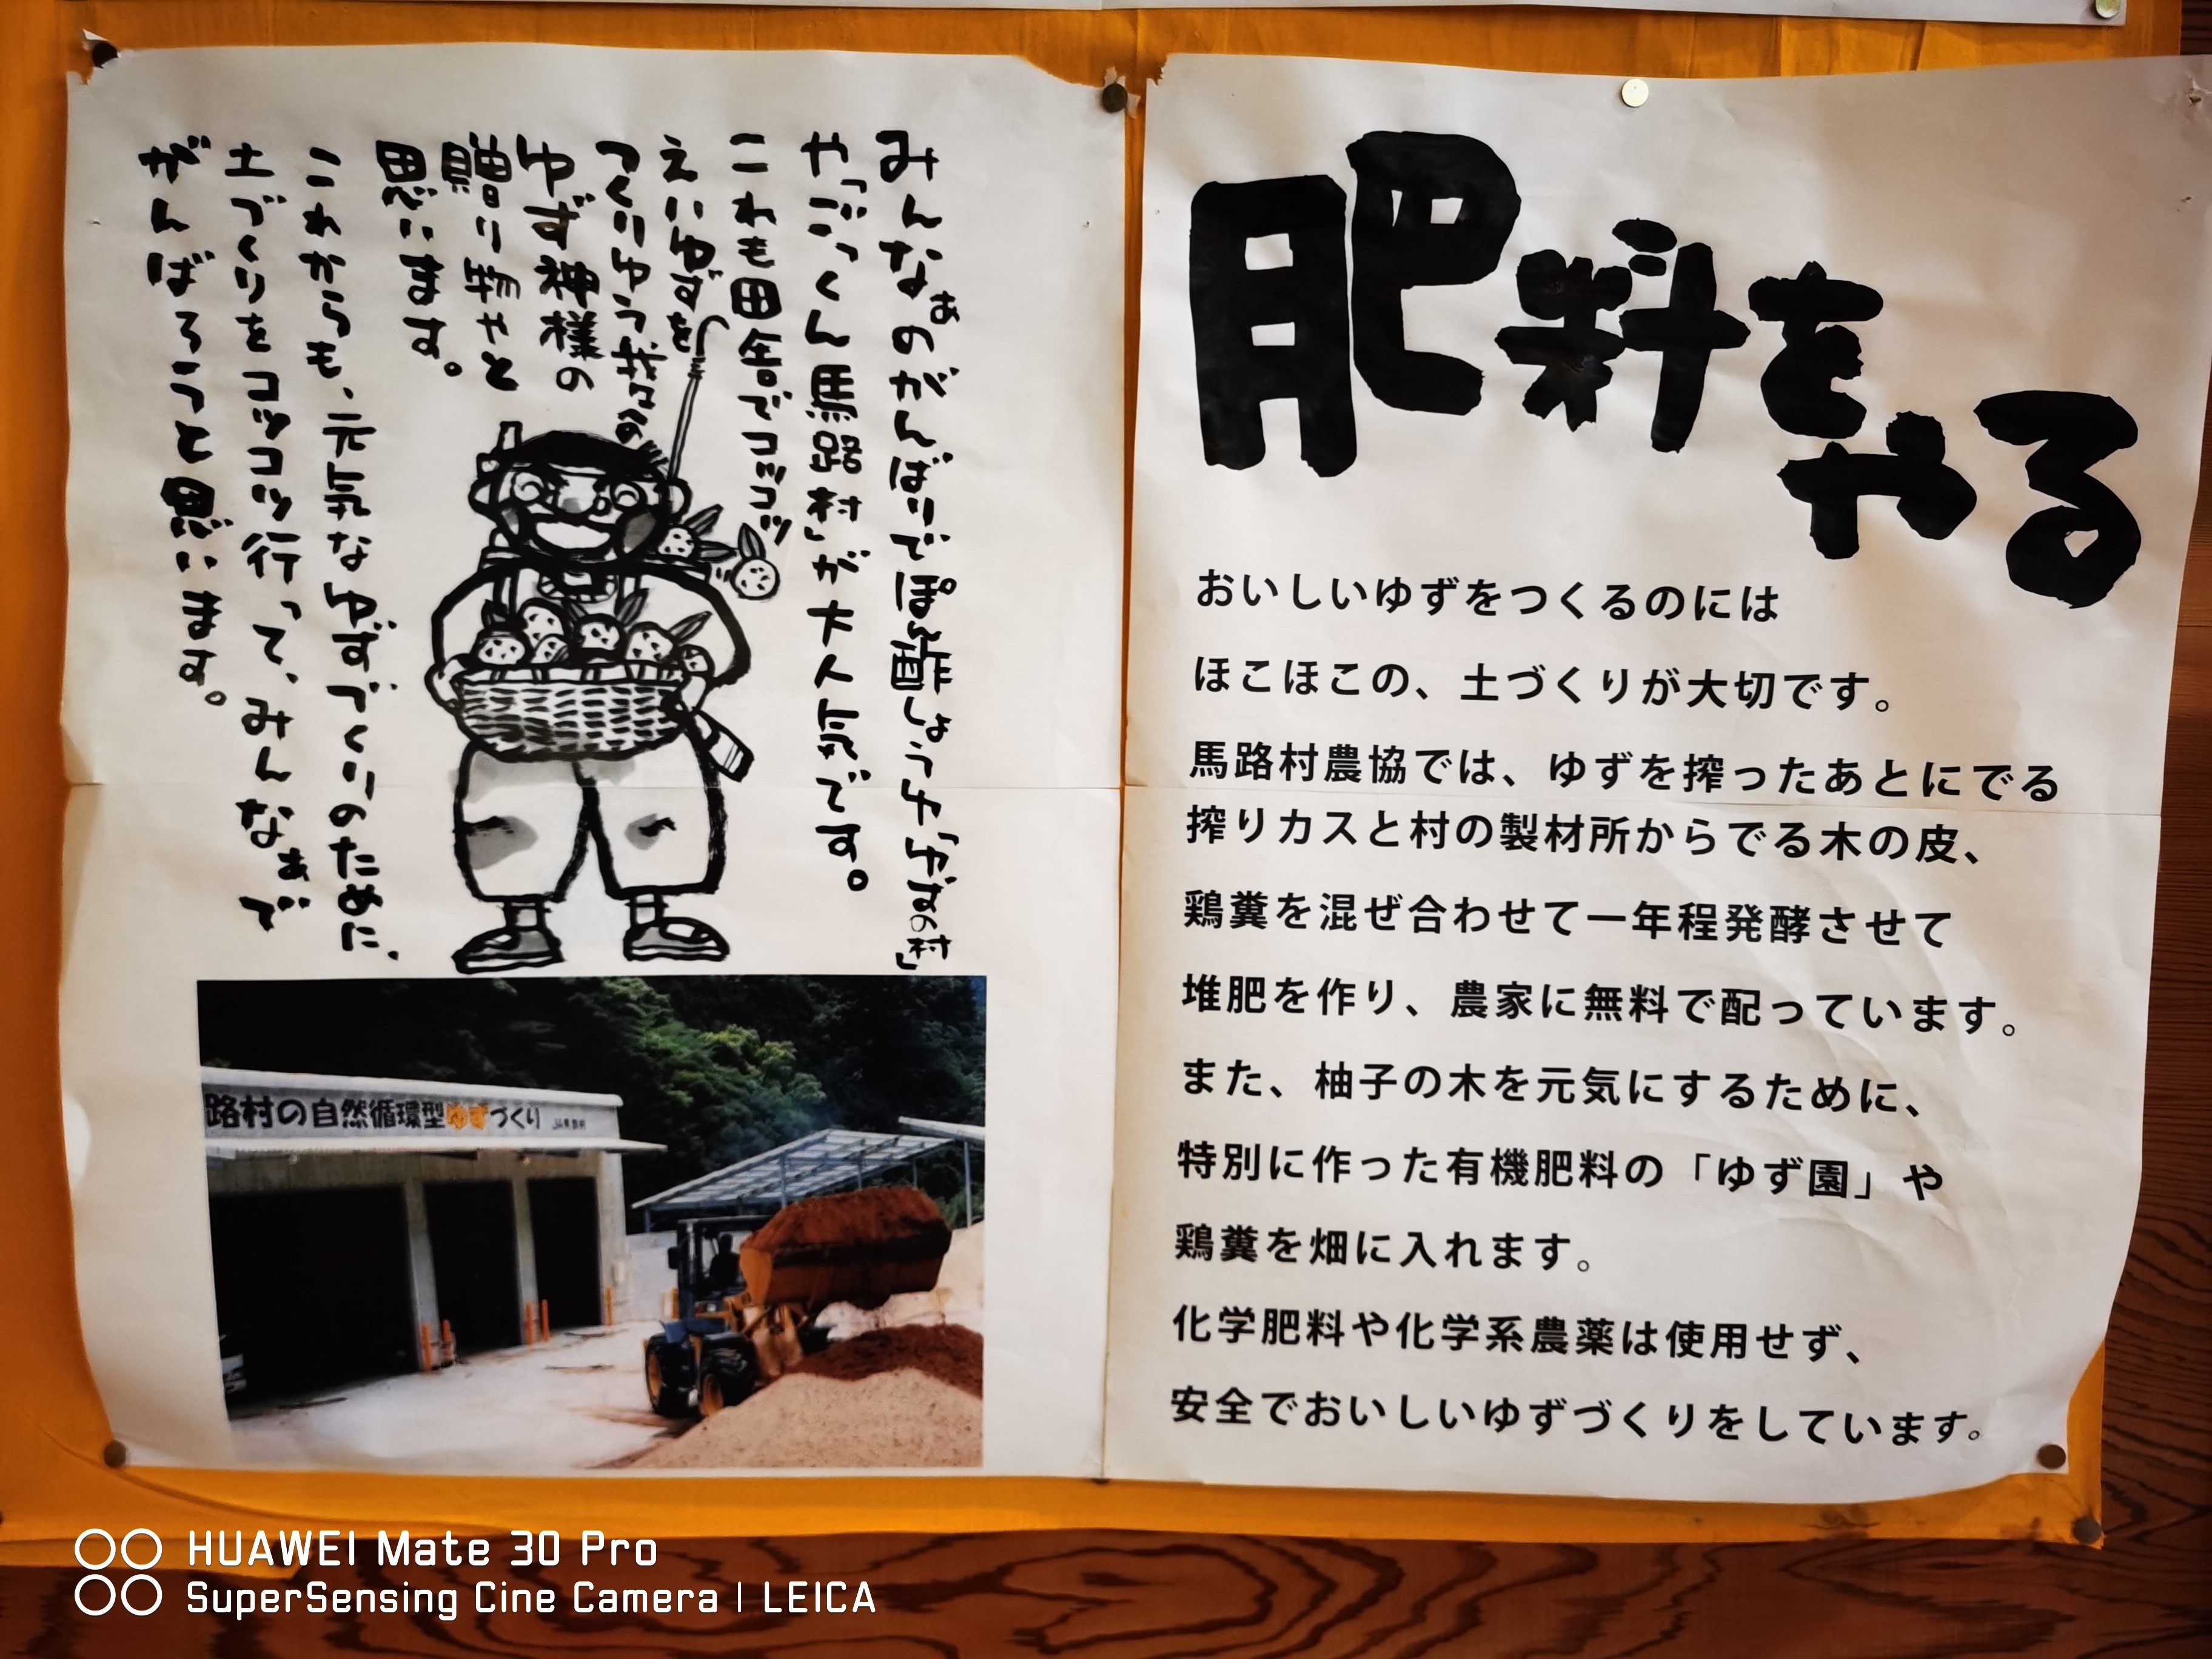 肥料をやる
おいしいゆずをつくるのには
ほこほこの、土づくりが大切です。
馬路村農協では、ゆずを搾ったあとにでる
搾りカスと村の製材所からでる木の皮、
鶏糞を混ぜ合わせて一年程発酵させて
堆肥を作り、農家に無料で配っています。
また、柚子の木を元気にするために、
特別に作った有機肥料の「ゆず園」や
鶏糞を畑に入れます。
化学肥料や化学系農薬は使用せず、
安全でおいしいゆずづくりをしています。
みんなぁのがんばりでぽん酢しょうゆ「ゆずの村」
や「ごっくん馬路村」が大人気です。
これも田舎でコツコツ
えいゆずを
つくりゆう我々への
ゆず神様の
贈り物やと
思います。
これからも、元気なゆずづくりのために、
土づくりをコツコツ行って、みんなぁで
がんばろうと思います。
路村の自然循環型ゆずづくり
HUAWEI Mate 30 Pro
SuperSensing Cine Camera | LEICA